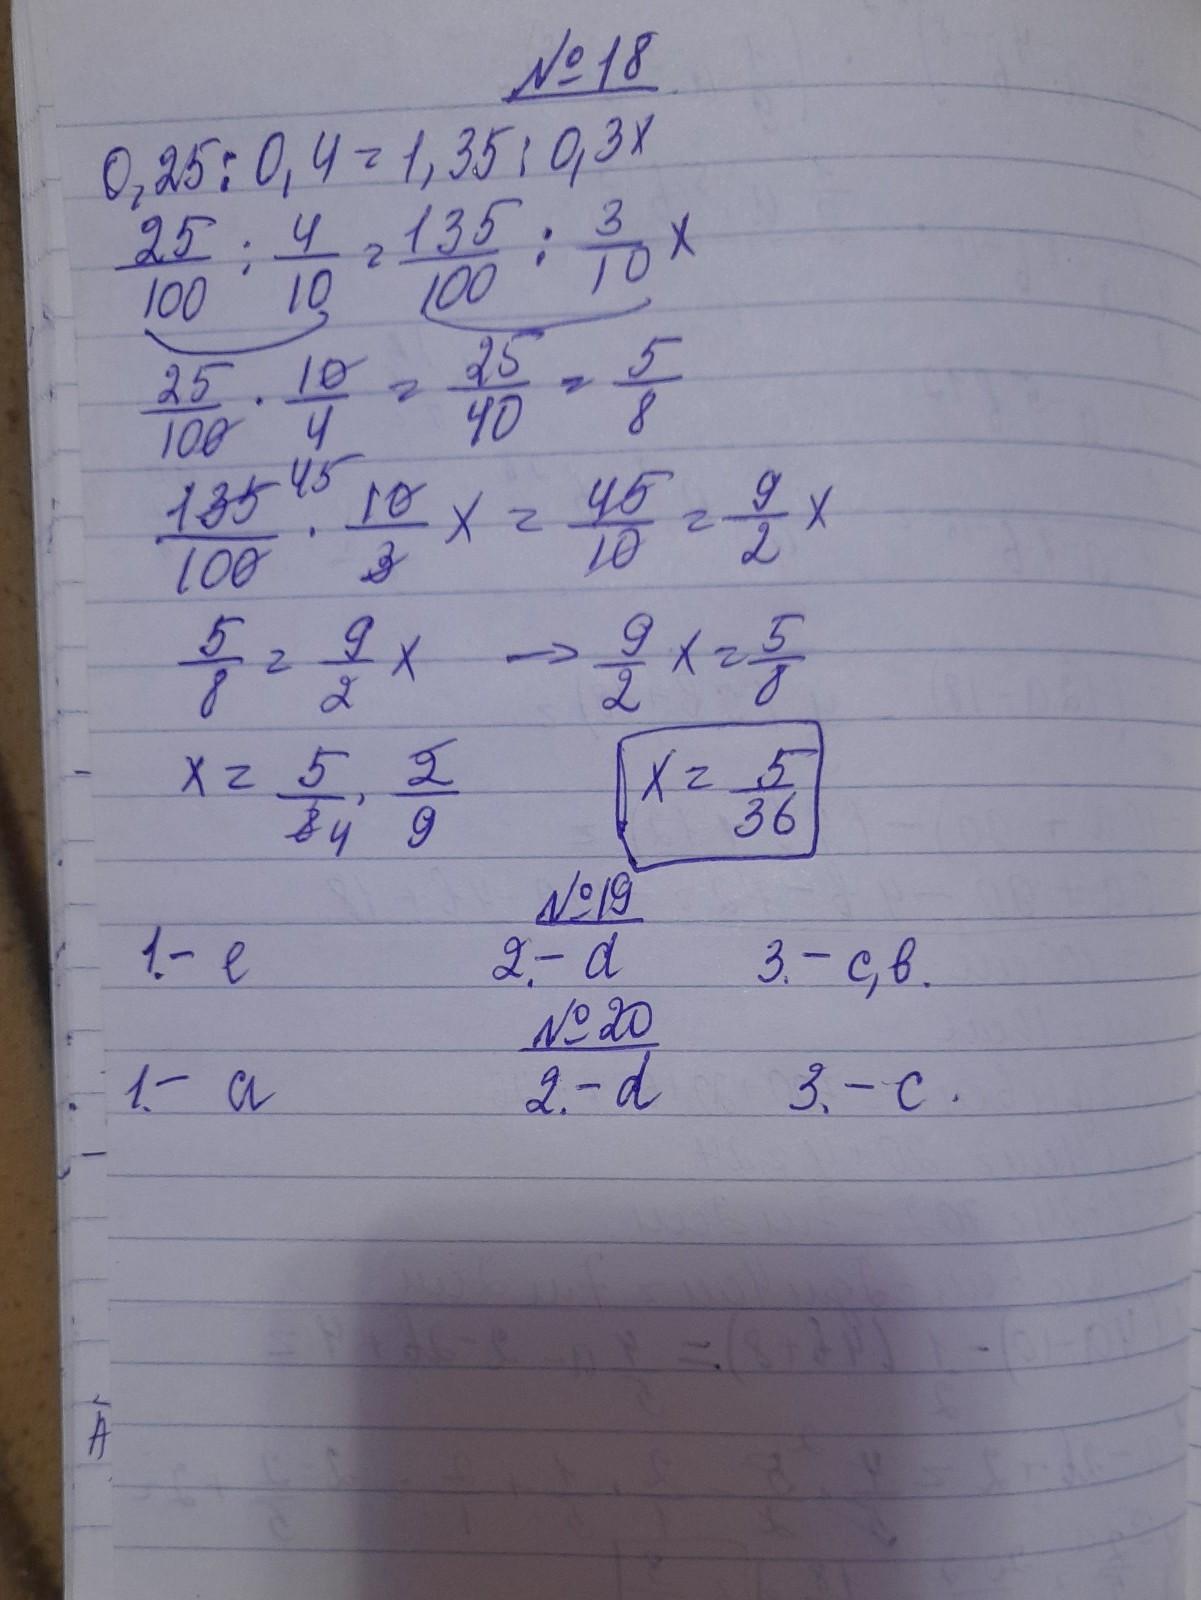 №18
0,25:0,4=1,35:0,3x
25/100 : 4/10 = 135/100 : 3/10 x
25/100 · 10/4 = 25/40 = 5/8
135/100 45 · 10/3 x = 45/10 = 9/2 x
5/8 = 9/2 x → 9/2 x = 5/8
x = 5/8 4 · 2/9 x = 5/36
№19
1.- e 2.- d 3.- c,b.
№20
1.- a 2.- d 3.- c.